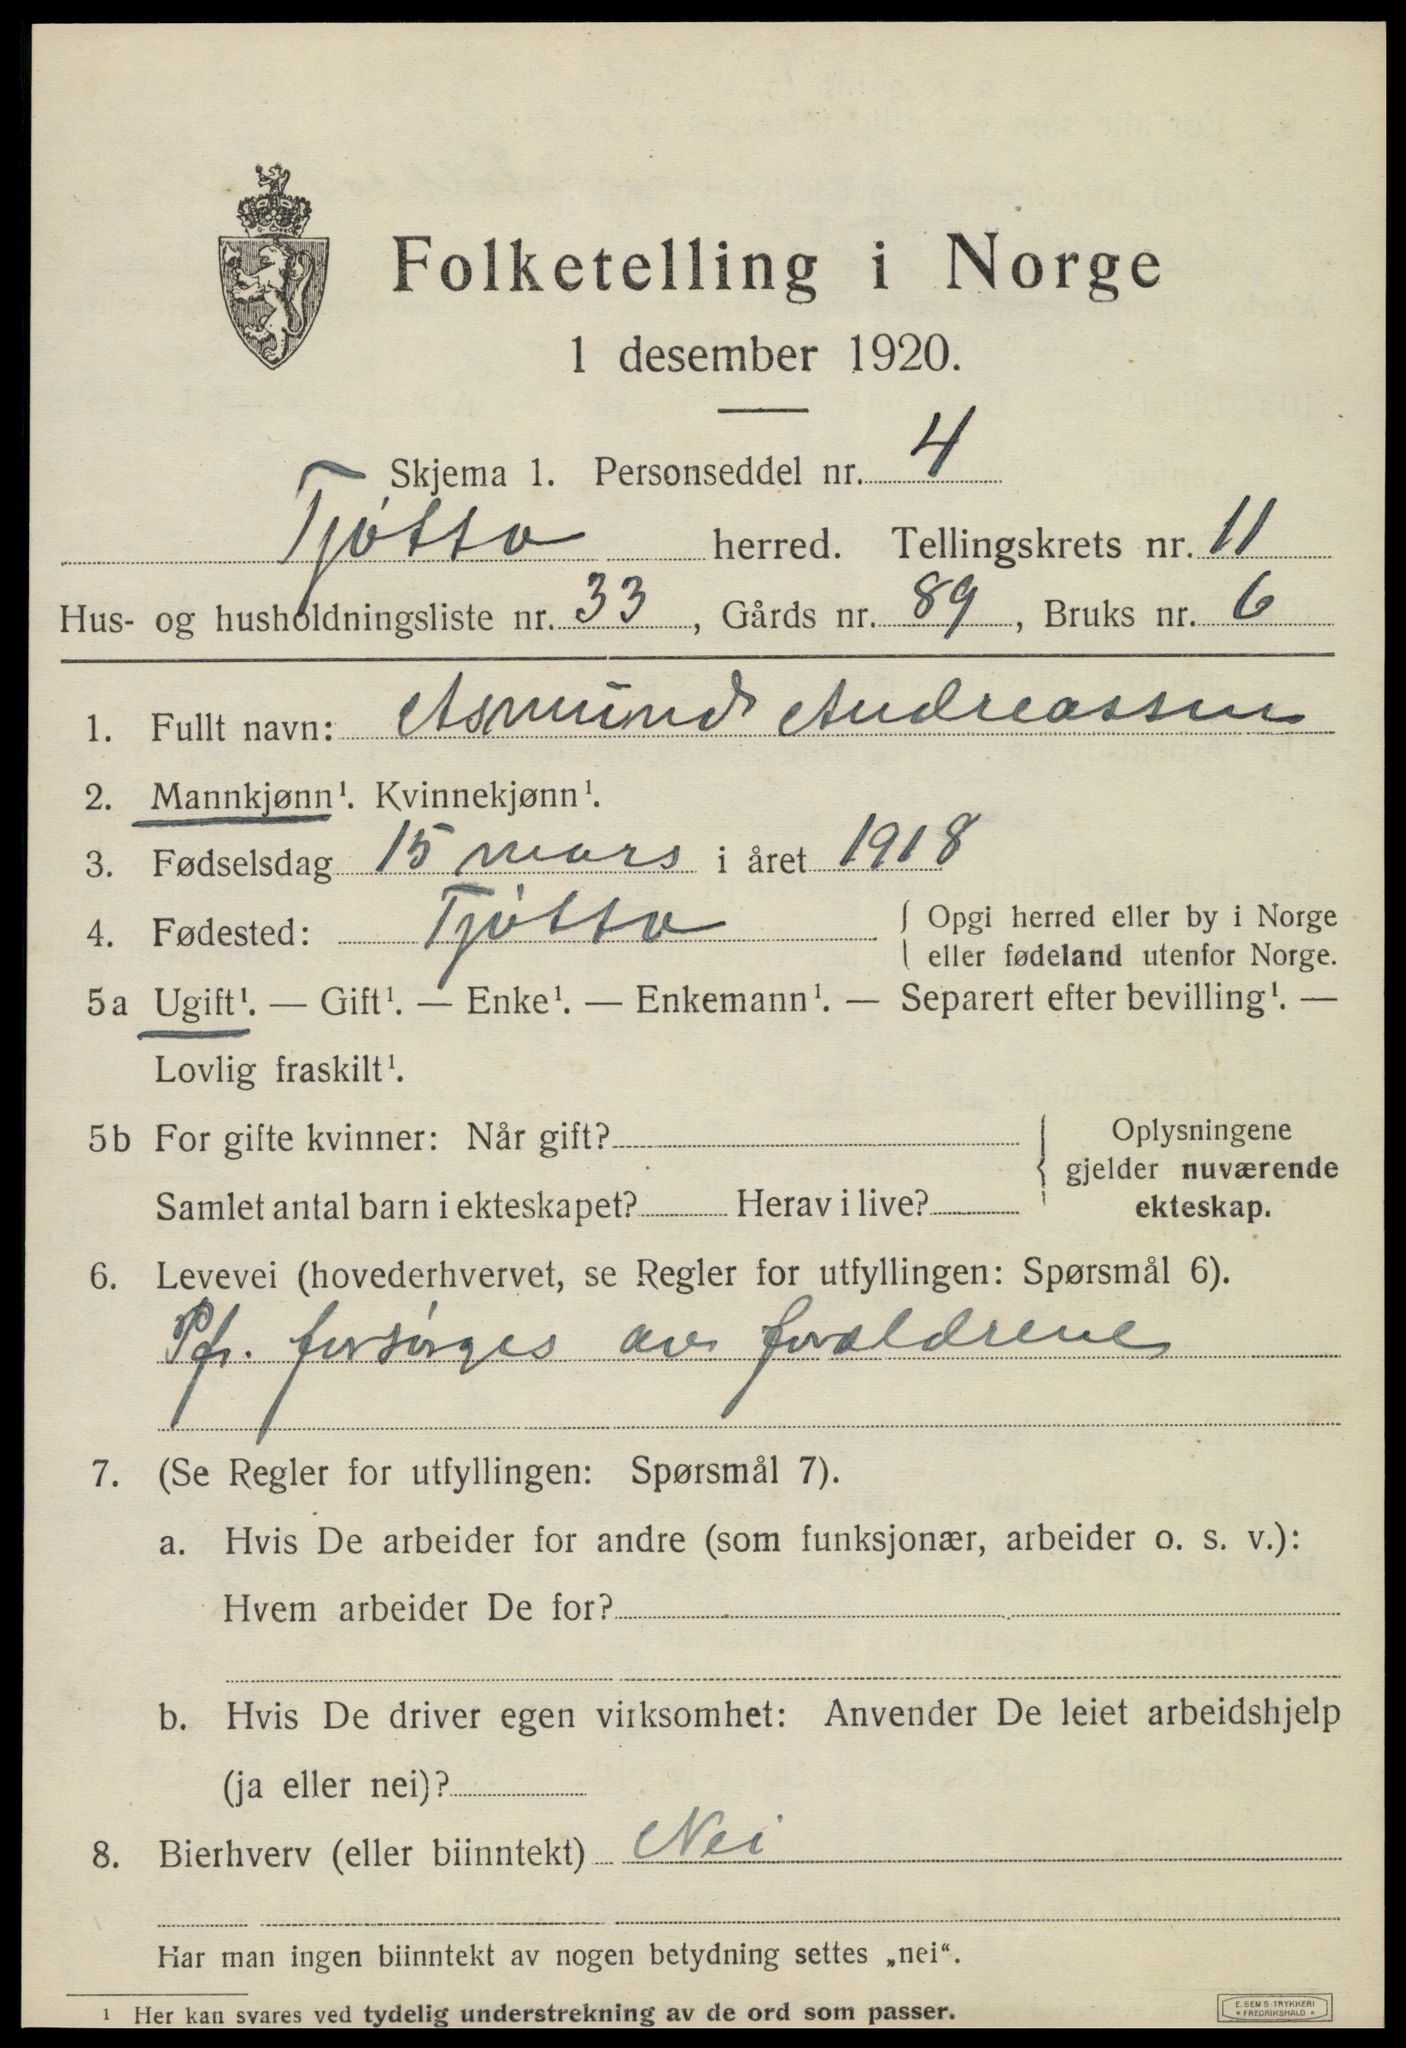 Folketelling i Norge
1 desember 1920.
Skjema 1. Personseddel nr. 4
Tjøtta herred. Tellingskrets nr. 11
Hus- og husholdningsliste nr. 33, Gårds nr. 89, Bruks nr. 6
1. Fullt navn: Asmund Andreassen
2. Mannkjønn¹. Kvinnekjønn¹.
3. Fødselsdag 15 mars i året 1918
4. Fødested: Tjøtta { Opgi herred eller by i Norge
eller fødeland utenfor Norge.
5a Ugift¹. — Gift¹. — Enke¹. — Enkemann¹. — Separert efter bevilling¹. —
Lovlig fraskilt¹.
5b For gifte kvinner: Når gift? { Oplysningene
gjelder nuværende
Samlet antal barn i ekteskapet? Herav i live? ekteskap.
6. Levevei (hovederhvervet, se Regler for utfyllingen: Spørsmål 6).
Pfr. forsørges av forældrene
7. (Se Regler for utfyllingen: Spørsmål 7).
a. Hvis De arbeider for andre (som funksjonær, arbeider o. s. v.):
Hvem arbeider De for?
b. Hvis De driver egen virksomhet: Anvender De leiet arbeidshjelp
(ja eller nei)?
8. Bierhverv (eller biinntekt) Nei
Har man ingen biinntekt av nogen betydning settes „nei“.
¹ Her kan svares ved tydelig understrekning av de ord som passer.
E. SEM'S TRYKKERI
FREDRIKSHALD